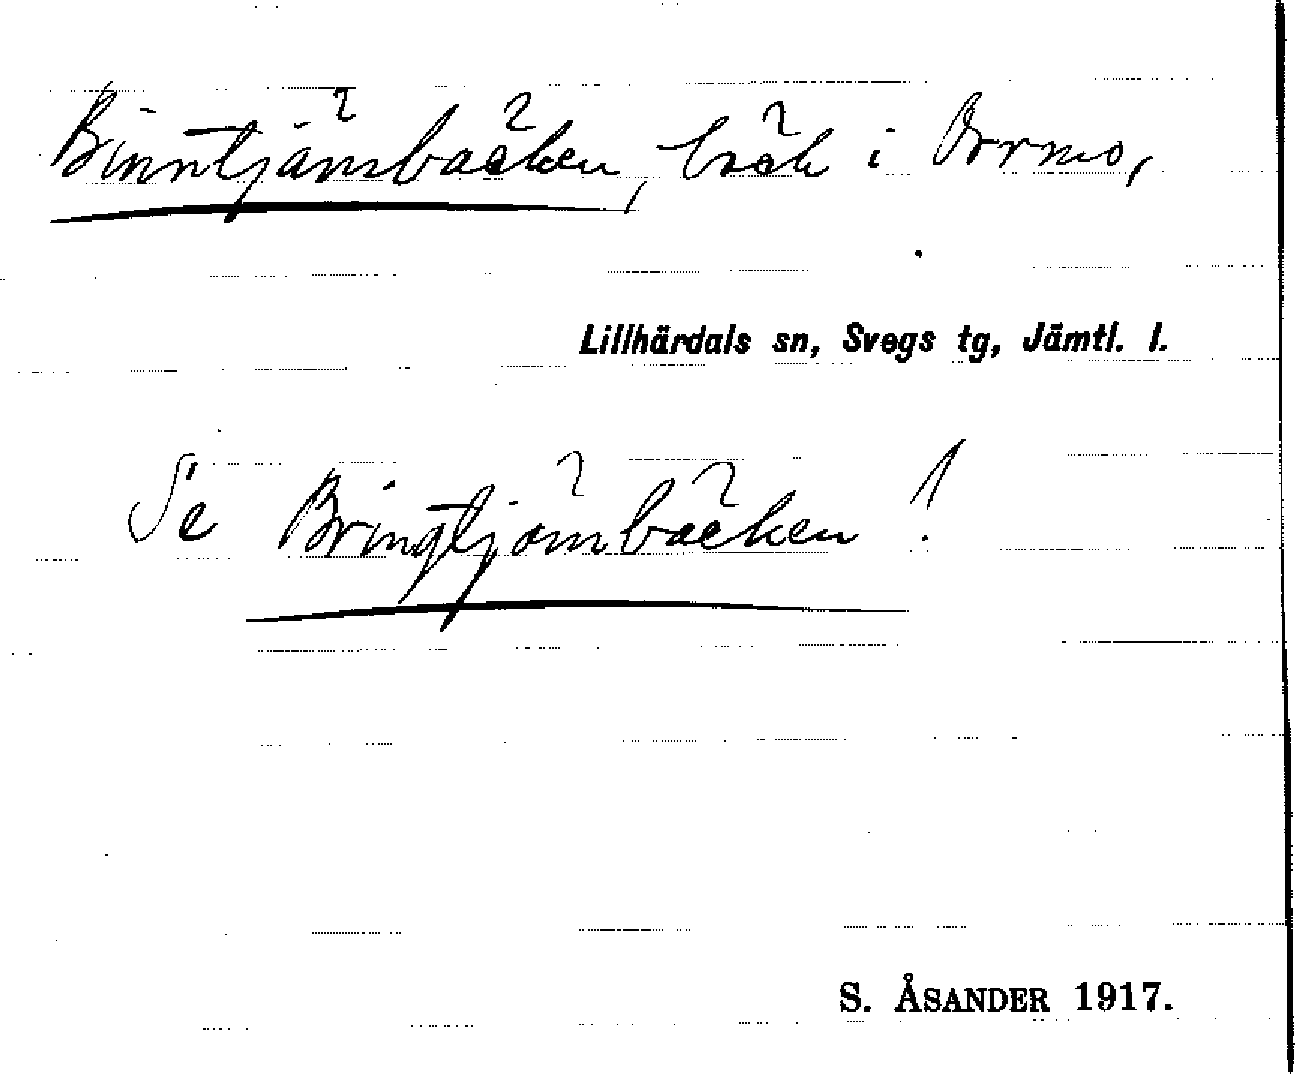 Binntjärnsbäcken, bäck i Orrmo,
Lillhärdals sn, Svegs tg, Jämtl. l.
Se Bringtjärnbäcken!
S. ÅSANDER 1917.